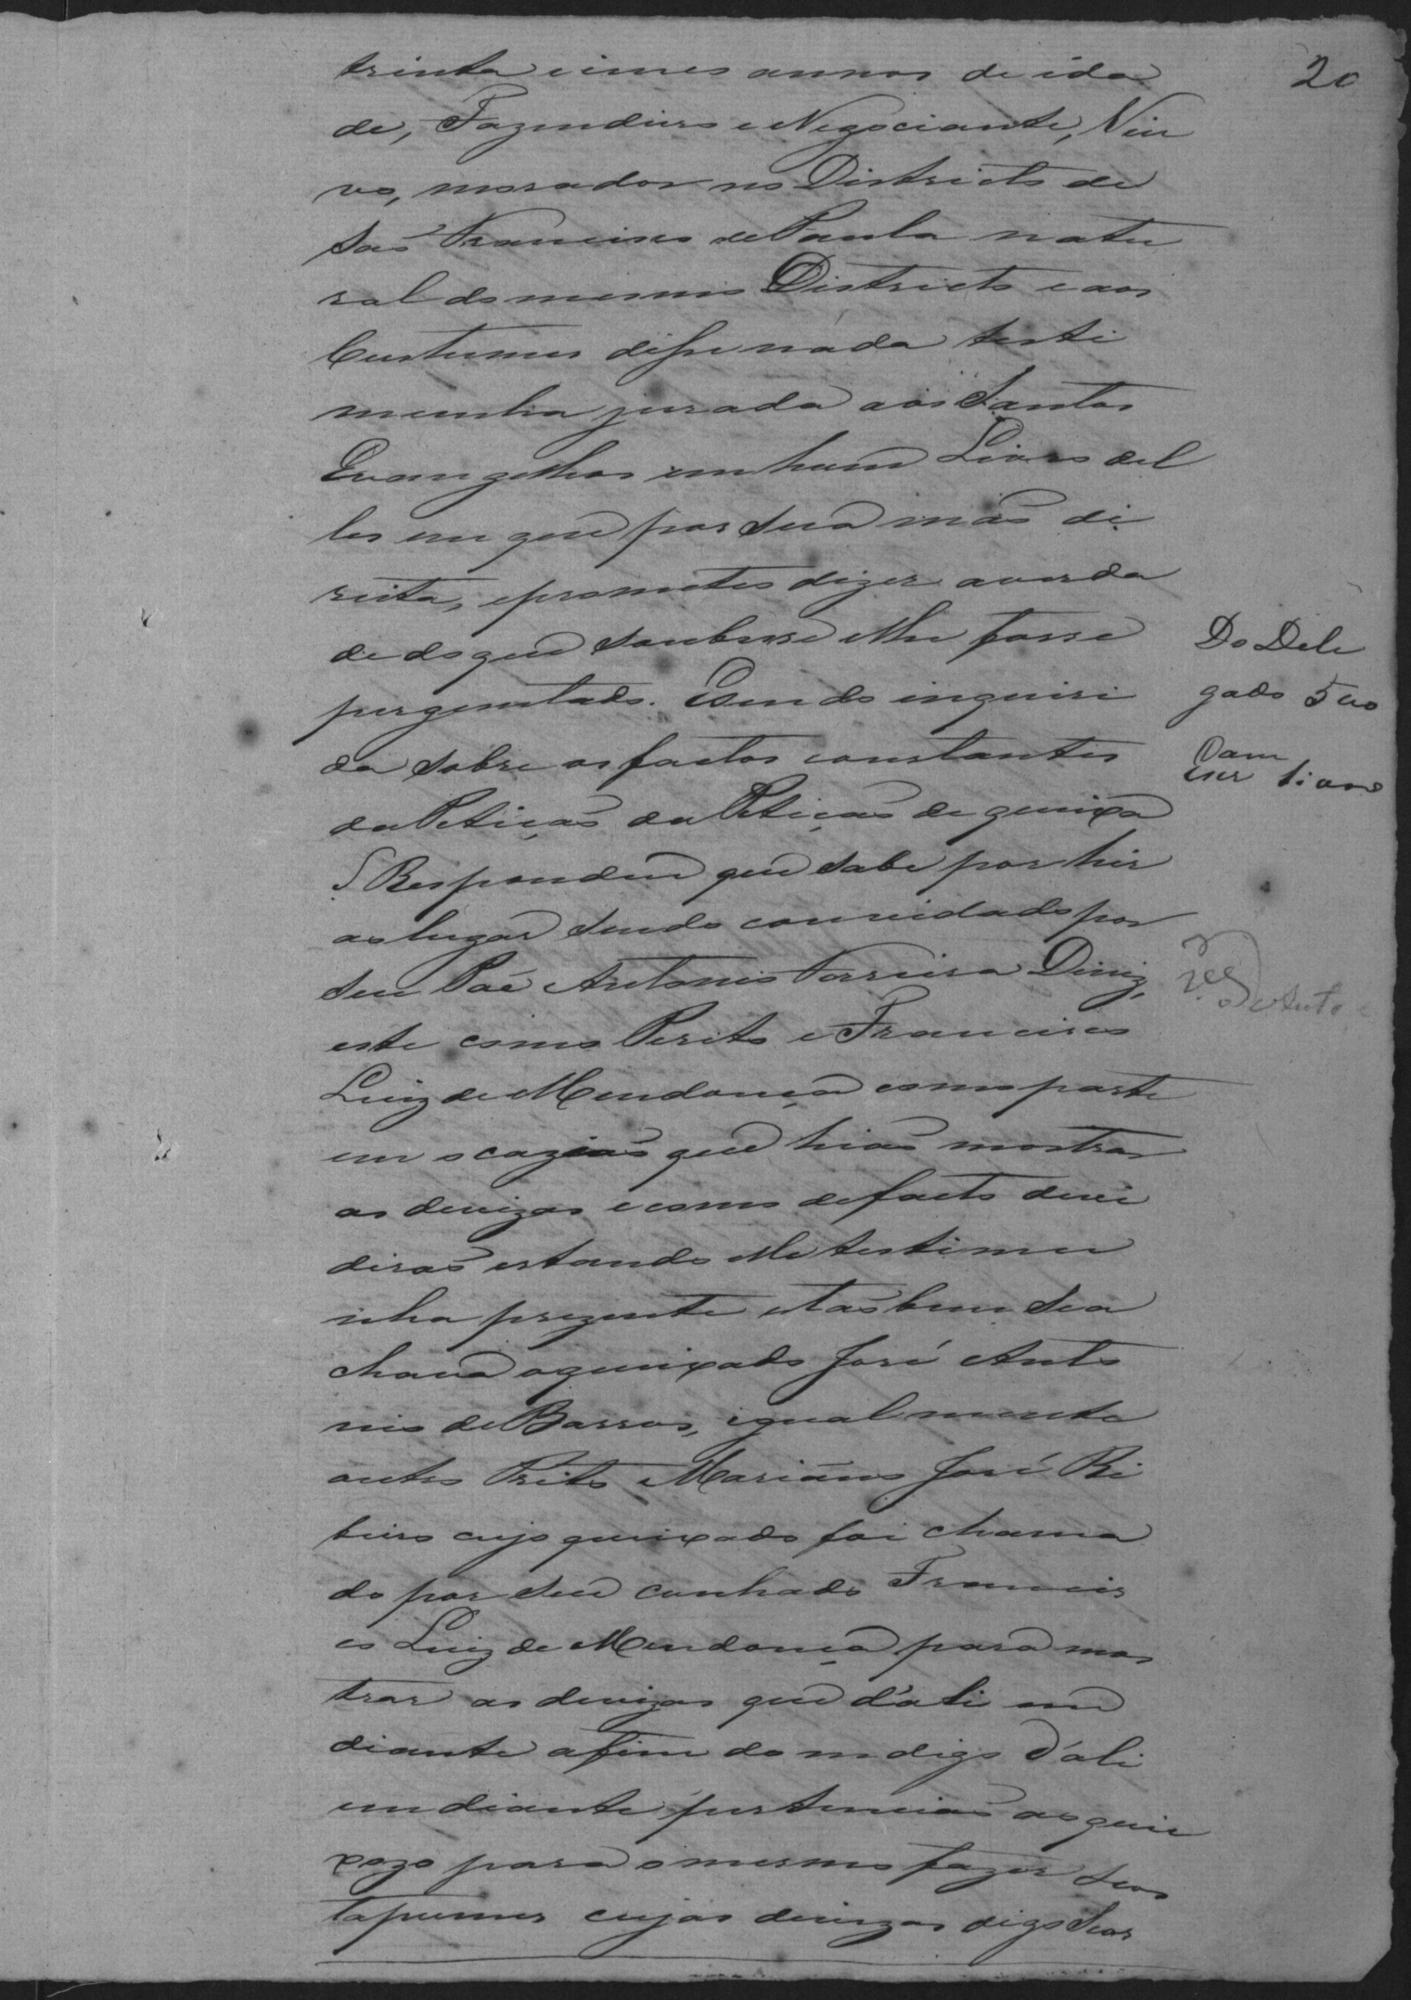 20
trinta e cinco annos de ida
de, Fazendeiro e Negociante, Viu
vo, morador no Districto de
São Francisco de Paula natu
ral do mesmo Districto e aos
Custumes disse náda testi
munha jurada aos Santos
Evangelhos em hum Livro del
les em que pos sua mão di
reita, e prometeo dizer a verda
de do que soubesse e lhe fosse
perguntado. E sendo inquiri
da sobre os factos constantes
da Petição da Petição de queixa
Respondeu que sabe por hir
ao lugar sendo convidado por
seu Pae Antonio Ferreira Diniz,
este como Perito e Francisco
Luiz de Mendonça como parte
em ocazião que hião mostrar
as devizas e como de facto devi
dirão estando elle testimu
nha prezente e tão bem se a
chava o queixado José Anto
nio de Barros, igualmente
outro Prito Mariano José Ri
beiro cujo queixado foi chama
do por seu cunhado Francis
co Luiz de Mendonça para mos
trar as devizas que d'ali em
diante afim do m digo d'ali
em diante pertencião ao quei
xozo para o mesmo fazer seos
tapumes cujas devizas digo seos
Do Dele
gado 500